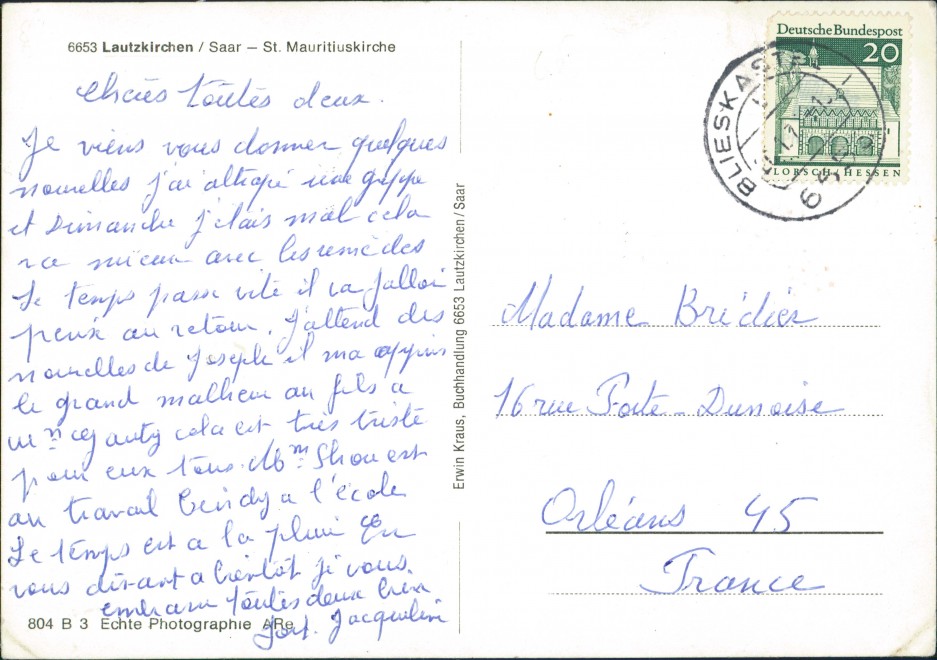 6653 Lautzkirchen / Saar – St. Mauritiuskirche
Chères toutes deux.
Je viens vous donner quelques
nouvelles j'ai attrapé une grippe
et Dimanche j'étais mal cela
va mieux avec les remèdes
Le temps passe vite il va falloir
penser au retour. J'attend des
nouvelles de Joseph il m'a appris
le grand malheur au fils a
cela est très triste
pour eux tous. Mm est
au travail Cindy a l'école
Le temps est a la pluie En
vous disant a bientôt je vous
embrasse toutes deux bien
fort. Jacqueline
804 B 3 Echte Photographie ARe
Erwin Kraus, Buchhandlung 6653 Lautzkirchen/Saar
Deutsche Bundespost
20
LORSCH/HESSEN
BLIESKASTEL
Madame Brédier
16 rue Porte-Dunoise
Orléans 45
France